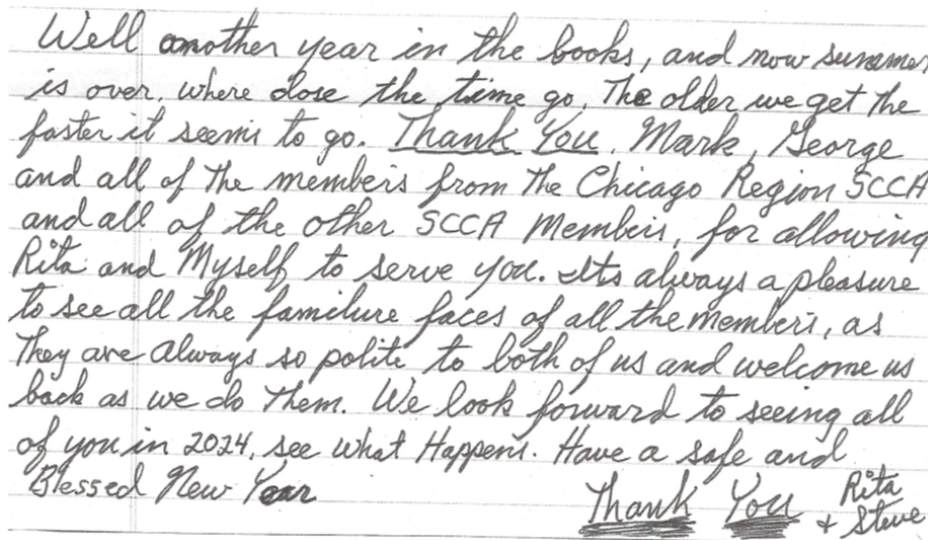 Well another year in the books, and now summer
is over, where dose the time go, The older we get the
faster it seems to go. Thank You, Mark, George
and all of the members from the Chicago Region SCCA
and all of the other SCCA Members, for allowing
Rita and Myself to serve you. Its always a pleasure
to see all the familure faces of all the members, as
They are always so polite to both of us and welcome us
back as we do them. We look forward to seeing all
of you in 2024, see what Happens. Have a safe and
Blessed New Year
Thank You Rita
+ Steve